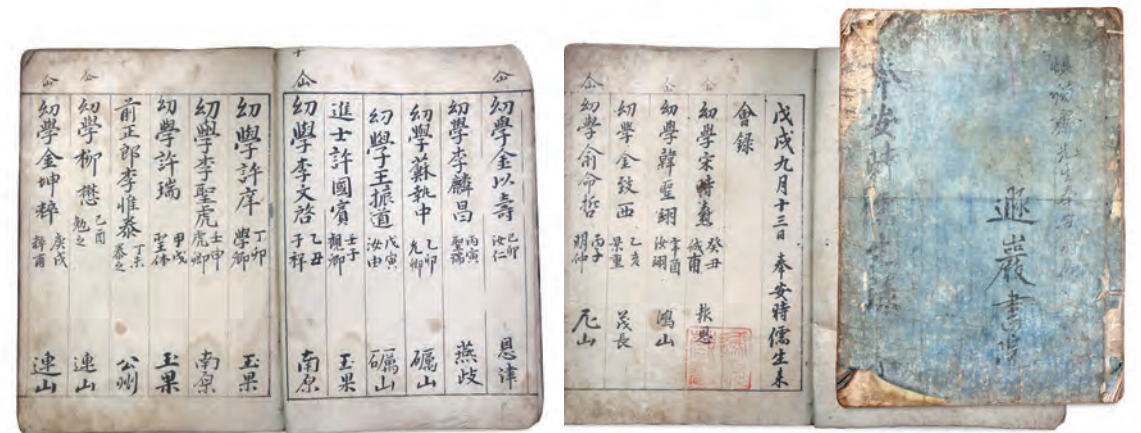 遯巖書院
戊戌九月十三日 奉安時儒生來
會錄
幼學宋時燾 癸丑 誠甫 報恩
幼學韓聖翊 辛酉 汝翊 鴻山
幼學金致西 乙亥 景重 茂長
幼學俞命哲 丙子 明仲 尼山
幼學金以壽 己卯 汝仁 恩津
幼學李麟昌 丙寅 聖瑞 燕歧
幼學蘇執中 乙卯 允卿 礪山
幼學王振道 戊寅 汝由 礪山
進士許國賓 壬子 觀卿 玉果
幼學李文啓 乙丑 子祥 南原
幼學許庠 丁卯 學卿 玉果
幼學李聖虎 壬申 虎卿 南原
幼學許瑞 甲戌 聖休 玉果
前正郎李惟泰 丁未 泰之 公州
幼學柳懋 己酉 勉之 連山
幼學金坤粹 庚戌 粹甫 連山